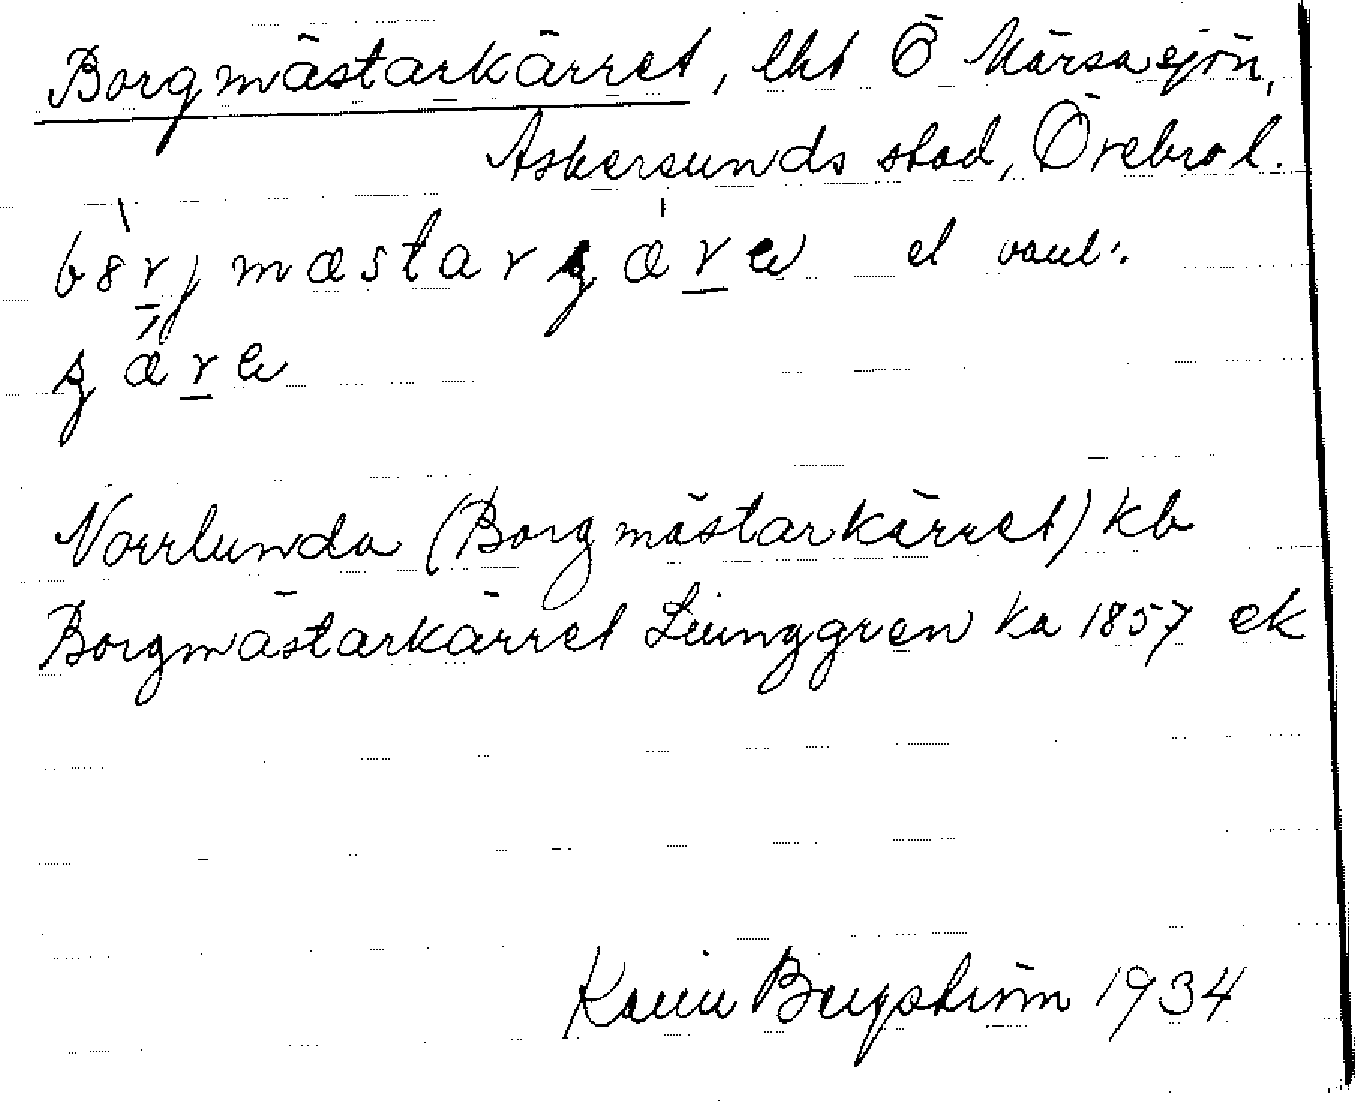 Borgmästarkärret, lht Ö Märsasjön,
Askersunds stad, Örebro l.
el vanl.:
Norrlunda (Borgmästarkärret) kb
Borgmästarkärret Liunggren ka 1857 ek
Karin Bergström 1934